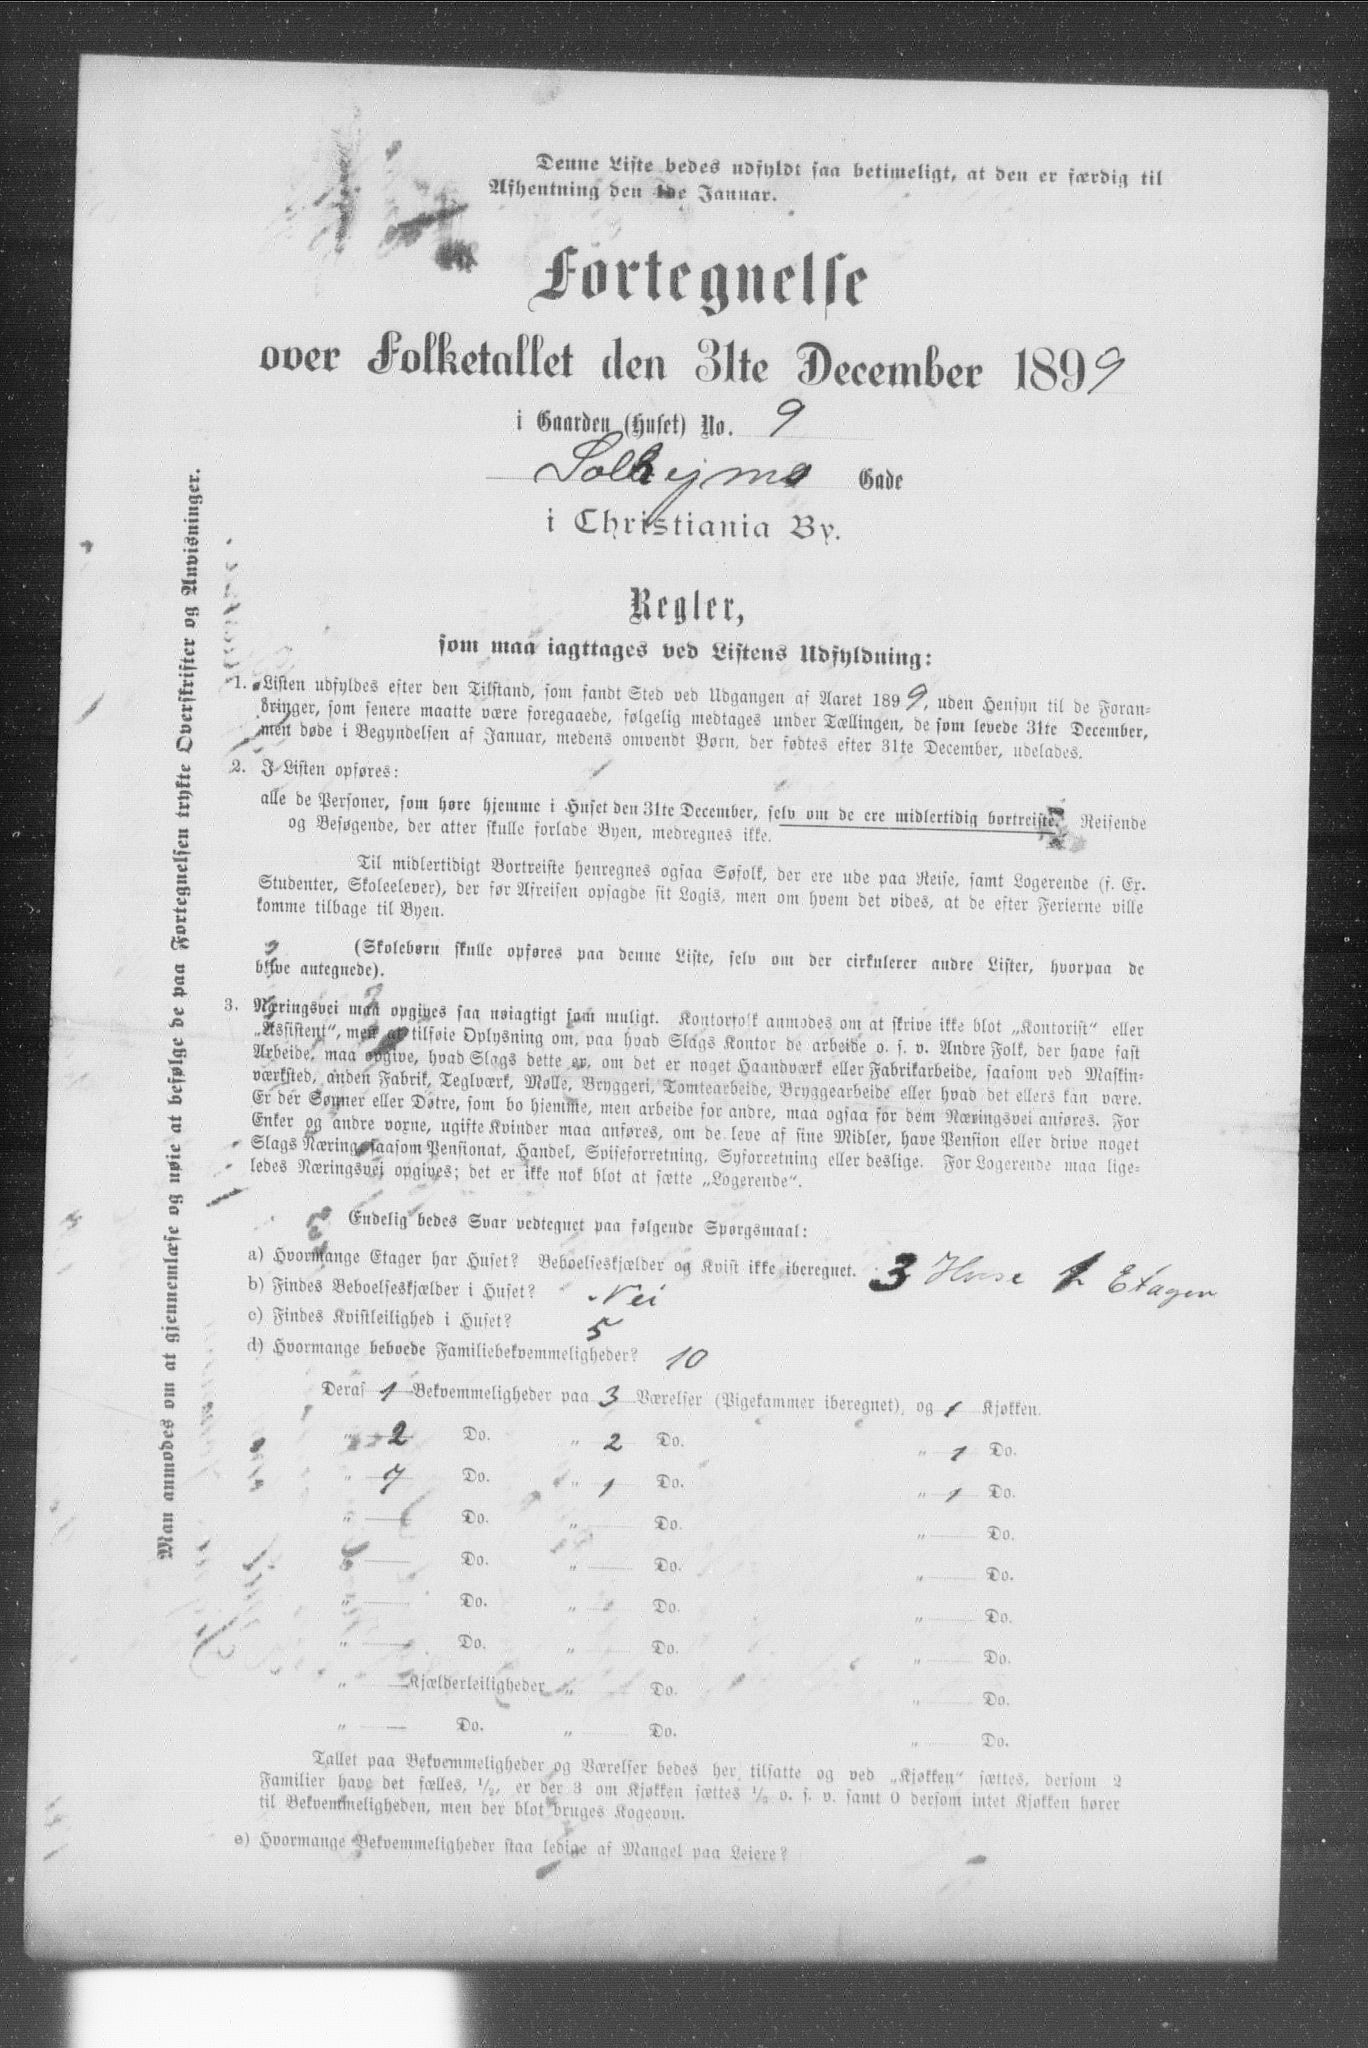 Denne Liste bedes udfyldt saa betimeligt, at den er færdig til
Afhentning den 1de Januar.
Fortegnelse
over Folketallet den 31te December 1899
i Gaarden (Huset) No. 9
Gade
i Christiania By.
Regler,
som maa iagttages ved Listens Udfyldning:
1. Listen udfyldes efter den Tilstand, som fandt Sted ved Udgangen af Aaret 1899, uden Hensyn til de Foran-
dringer, som senere maatte være foregaaede, følgelig medtages under Tællingen, de som levede 31te December,
men døde i Begyndelsen af Januar, medens omvendt Børn, der fødtes efter 31te December, udelades.
2. I Listen opføres:
alle de Personer, som høre hjemme i Huset den 31te December, selv om de ere midlertidig bortreiste. Reisende
og Besøgende, der atter skulle forlade Byen, medregnes ikke.
Til midlertidigt Bortreiste henregnes ogsaa Søfolk, der ere ude paa Reise, samt Logerende (f. Ex.
Studenter, Skoleelever), der før Afreisen opsagde sit Logis, men om hvem det vides, at de efter Ferierne ville
komme tilbage til Byen.
(Skolebørn skulle opføres paa denne Liste, selv om der cirkulerer andre Lister, hvorpaa de
blive antegnede).
3. Næringsvei maa opgives saa nøiagtigt som muligt. Kontorfolk anmodes om at skrive ikke blot „Kontorist“ eller
„Assistent“, men at tilføie Oplysning om, paa hvad Slags Kontor de arbeide o. s. v. Andre Folk, der have fast
Arbeide, maa opgive, hvad Slags dette er, om det er noget Haandværk eller Fabrikarbeide, saasom ved Maskin-
værksted, anden Fabrik, Teglværk, Mølle, Bryggeri, Tomtearbeide, Bryggearbeide eller hvad det ellers kan være.
Er der Sønner eller Døtre, som bo hjemme, men arbeide for andre, maa ogsaa for dem Næringsvei anføres. For
Enker og andre voxne, ugifte Kvinder maa anføres, om de leve af sine Midler, have Pension eller drive noget
Slags Næring, saasom Pensionat, Handel, Spiseforretning, Syforretning eller deslige. For Logerende maa lige-
ledes Næringsvei opgives; det er ikke nok blot at sætte „Logerende“.
Endelig bedes Svar vedtegnet paa følgende Spørgsmaal:
a) Hvormange Etager har Huset? Beboelseskjælder og Kvist ikke iberegnet. 3 Huse 1 Etager
b) Findes Beboelseskjælder i Huset? Nei
c) Findes Kvistleilighed i Huset? 5
d) Hvormange beboede Familiebekvemmeligheder? 10
Deraf 1 Bekvemmeligheder paa 3 Værelser (Pigekammer iberegnet), og 1 Kjøkken.
„ 2 Do. „ 2 Do. „ 1 Do.
„ 7 Do. „ 1 Do. „ 1 Do.
„ Do. „ Do. „ Do.
„ Do. „ Do. „ Do.
„ Do. „ Do. „ Do.
„ Do. „ Do. „ Do.
„ Kjælderleiligheder „ Do. „ Do.
„ Do. „ Do. „ Do.
Tallet paa Bekvemmeligheder og Værelser bedes her tilsatte og ved „Kjøkken“ sættes, dersom 2
Familier have det fælles, 1/2, er der 3 om Kjøkken sættes 1/3 o. s. v. samt 0 dersom intet Kjøkken hører
til Bekvemmeligheden, men der blot bruges Kogeovn.
e) Hvormange Bekvemmeligheder staa ledige af Mangel paa Leiere?
Man anmodes om at gjennemlæse og nøie at befølge de paa Fortegnelsen trykte Overskrifter og Anvisninger.